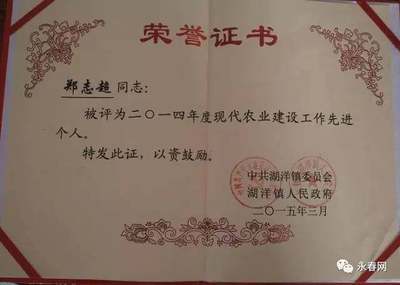 荣誉证书
郑志超 同志:
被评为二〇一四年度现代农业建设工作先进
个人。
特发此证，以资鼓励。
中共湖洋镇委员会
湖洋镇人民政府
二〇一五年三月
永春网